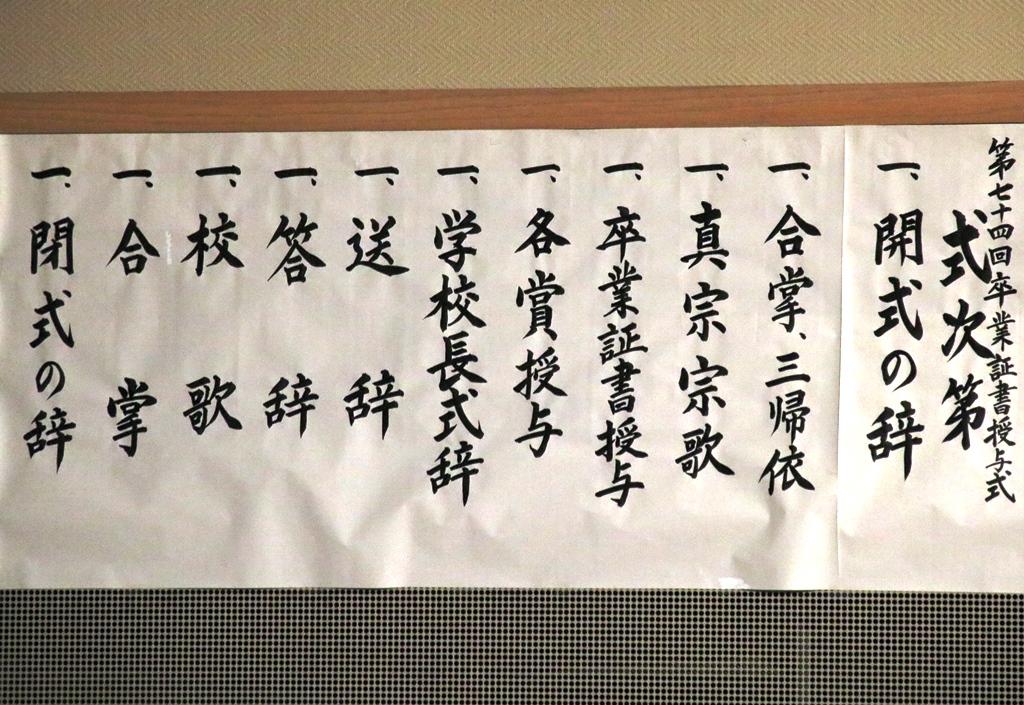 第七十四回卒業証書授与式
式次第
一、開式の辞
一、合掌、三帰依
一、真宗宗歌
一、卒業証書授与
一、各賞授与
一、学校長式辞
一、送辞
一、答辞
一、校歌
一、合掌
一、閉式の辞